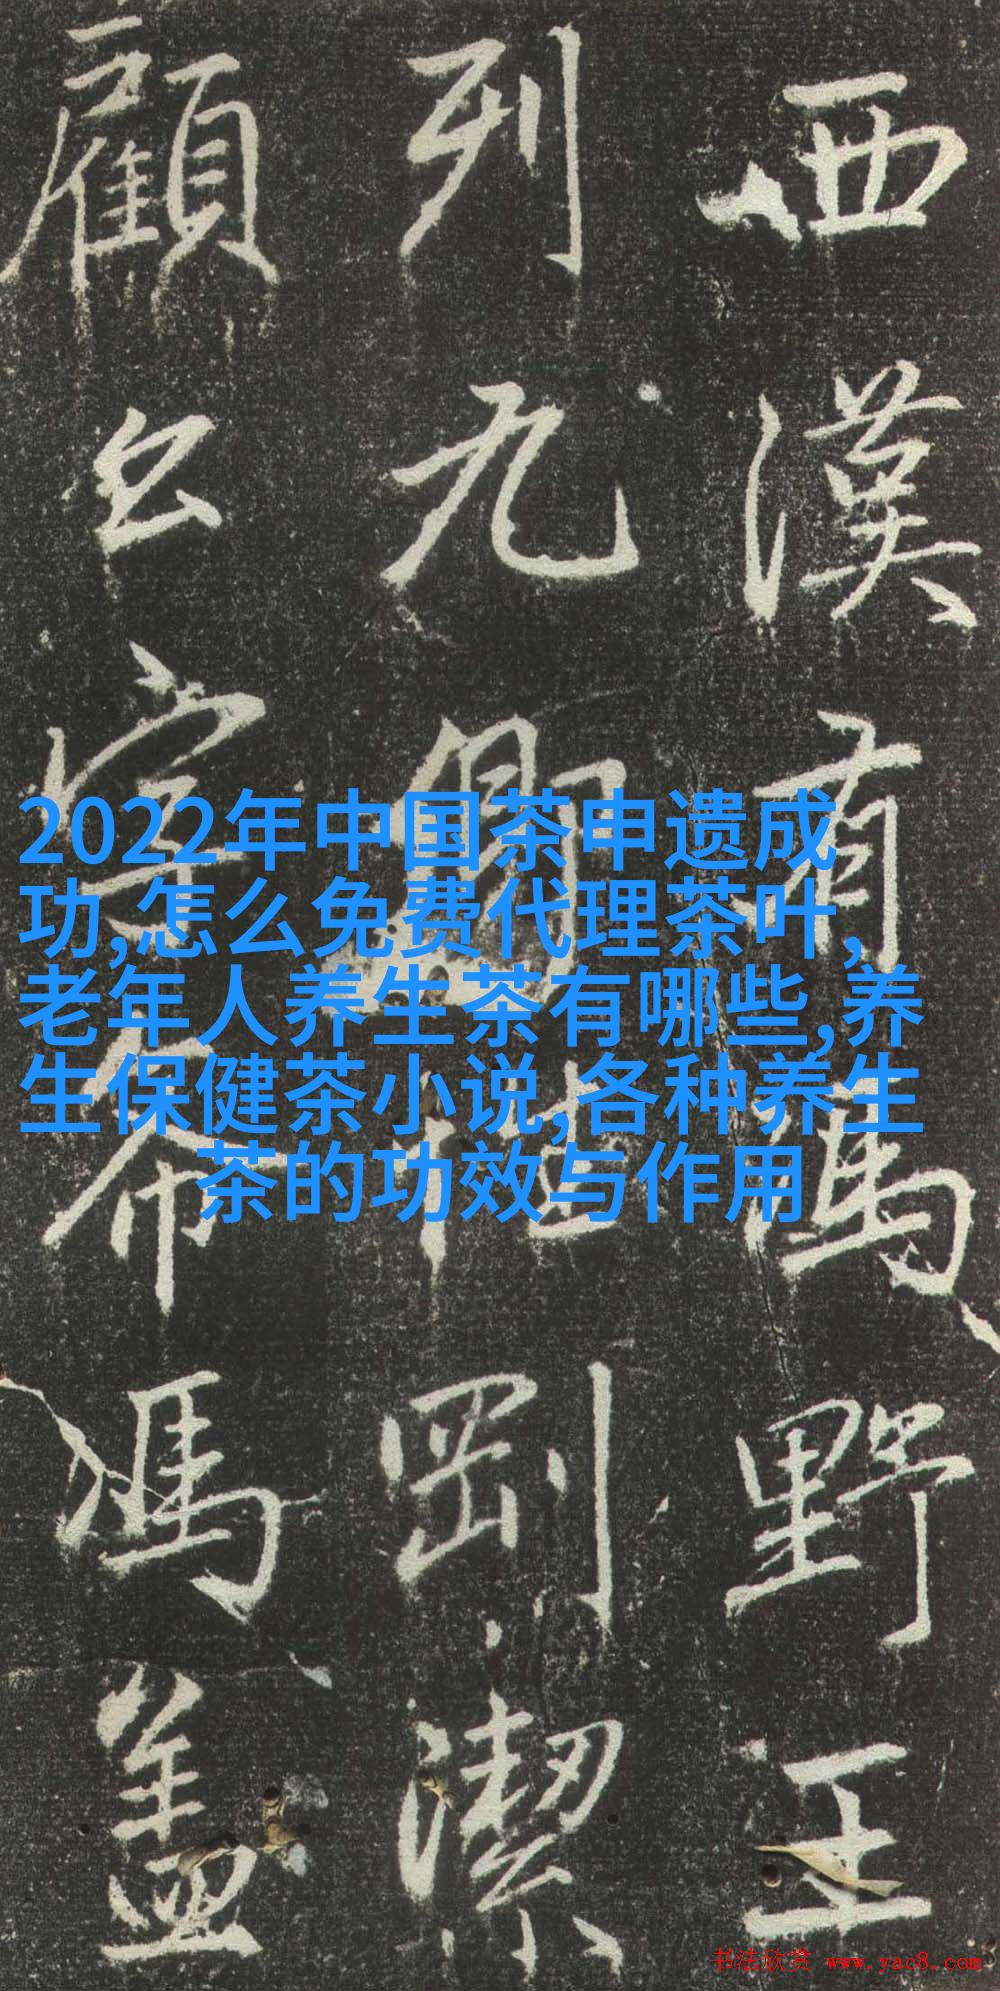 西漢有馮野王
列九剛潔
顧馮蓋
2022年中国茶申遗成
功,怎么免费代理茶叶,
老年人养生茶有哪些,养
生保健茶小说,各种养生
茶的功效与作用
书法欣赏 www.yac8.com